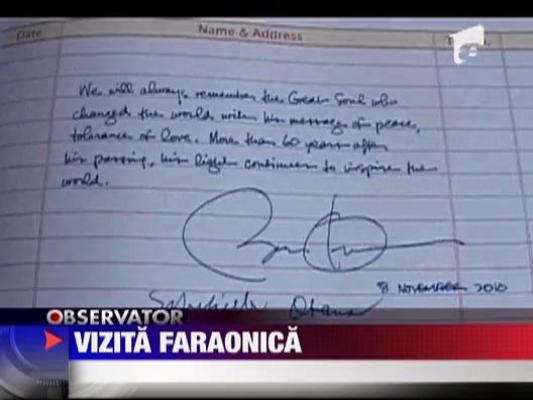 Date Name & Address
We will always remember the Great Soul who
changed the world with his message of peace,
tolerance of love. More than 60 years after
his passing, his light continues to inspire the
world.
8 NOVEMBER 2010
Obama
OBSERVATOR
VIZITĂ FARAONICĂ